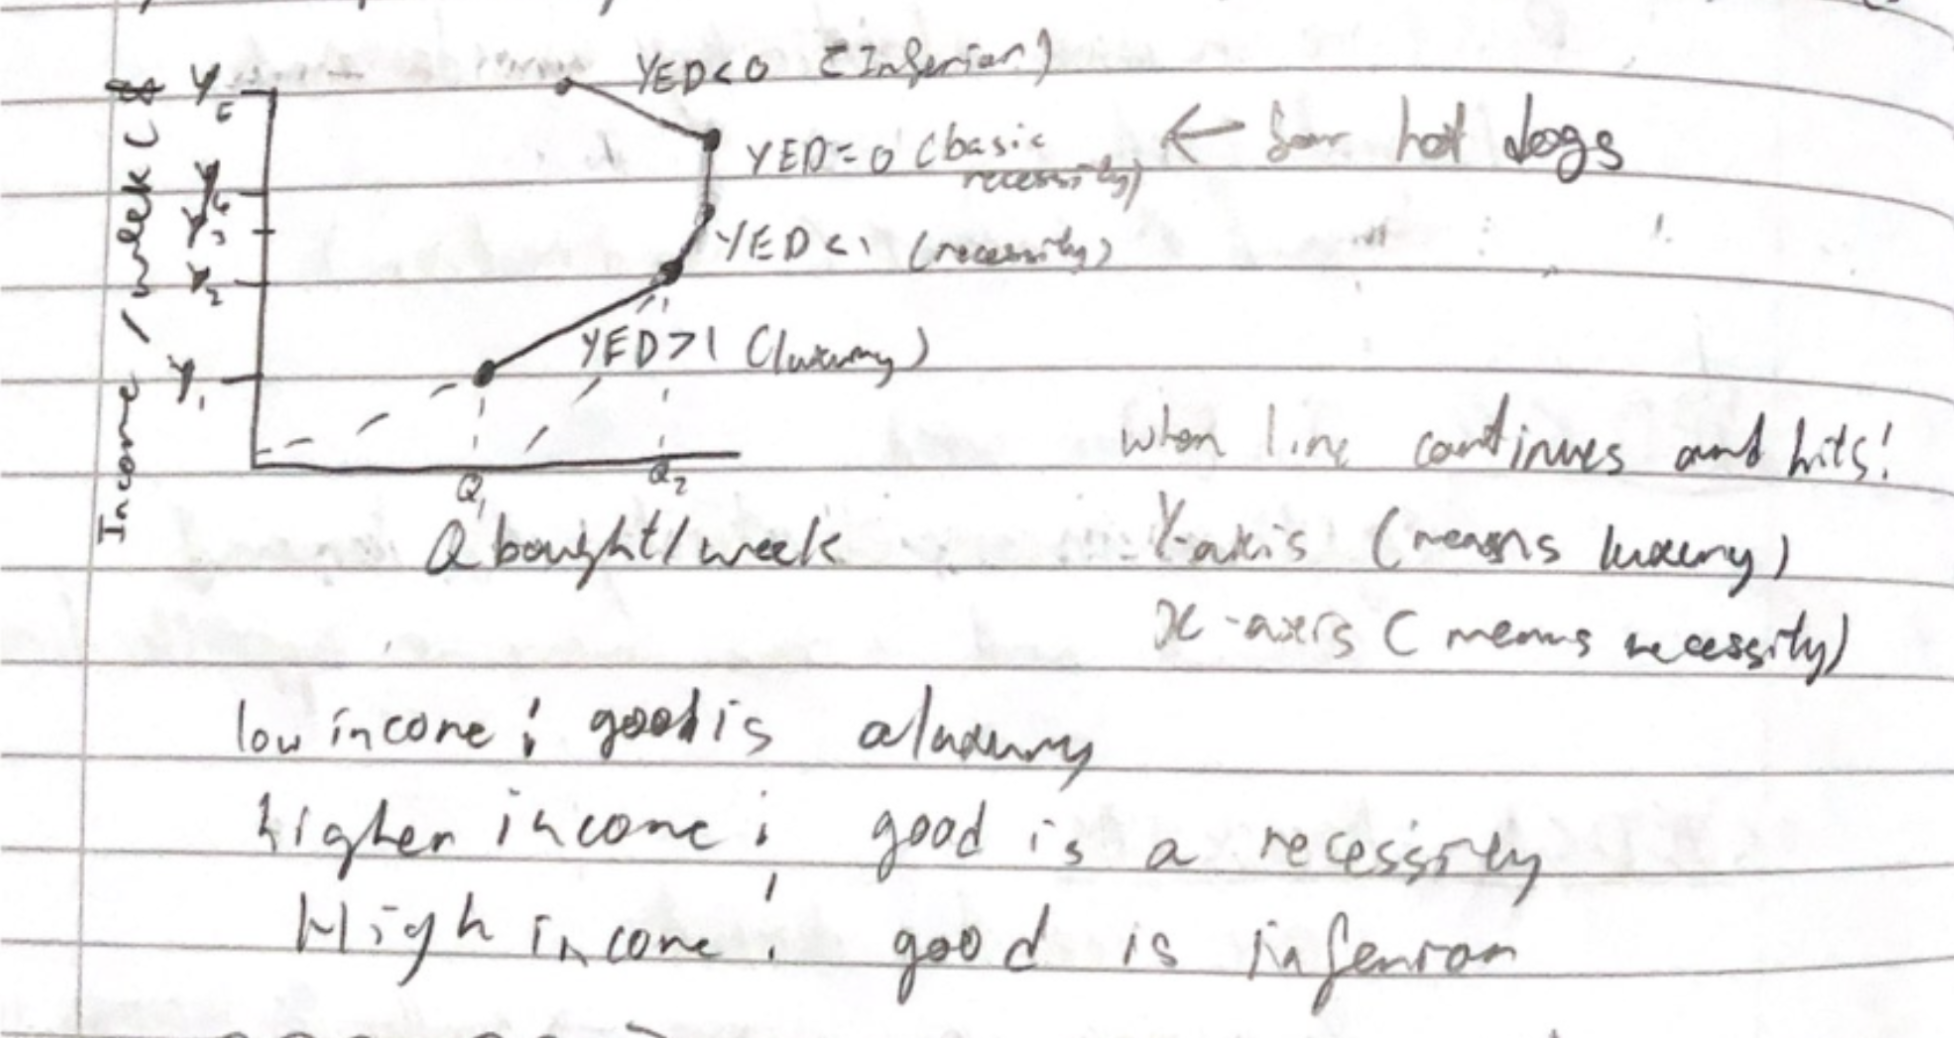 YED<0 (Inferior)
Y5
YED=0 (basic necessity) ← for hot dogs
Y4
Y3
YED<1 (necessity)
Y2
YED>1 (luxury)
Y1
Income / week ($
Q1 Q2
Q bought/week
when line continues and hits:
Y-axis (means luxury)
x-axis (means necessity)
low income: good is a luxury
higher income: good is a necessity
High income: good is inferior